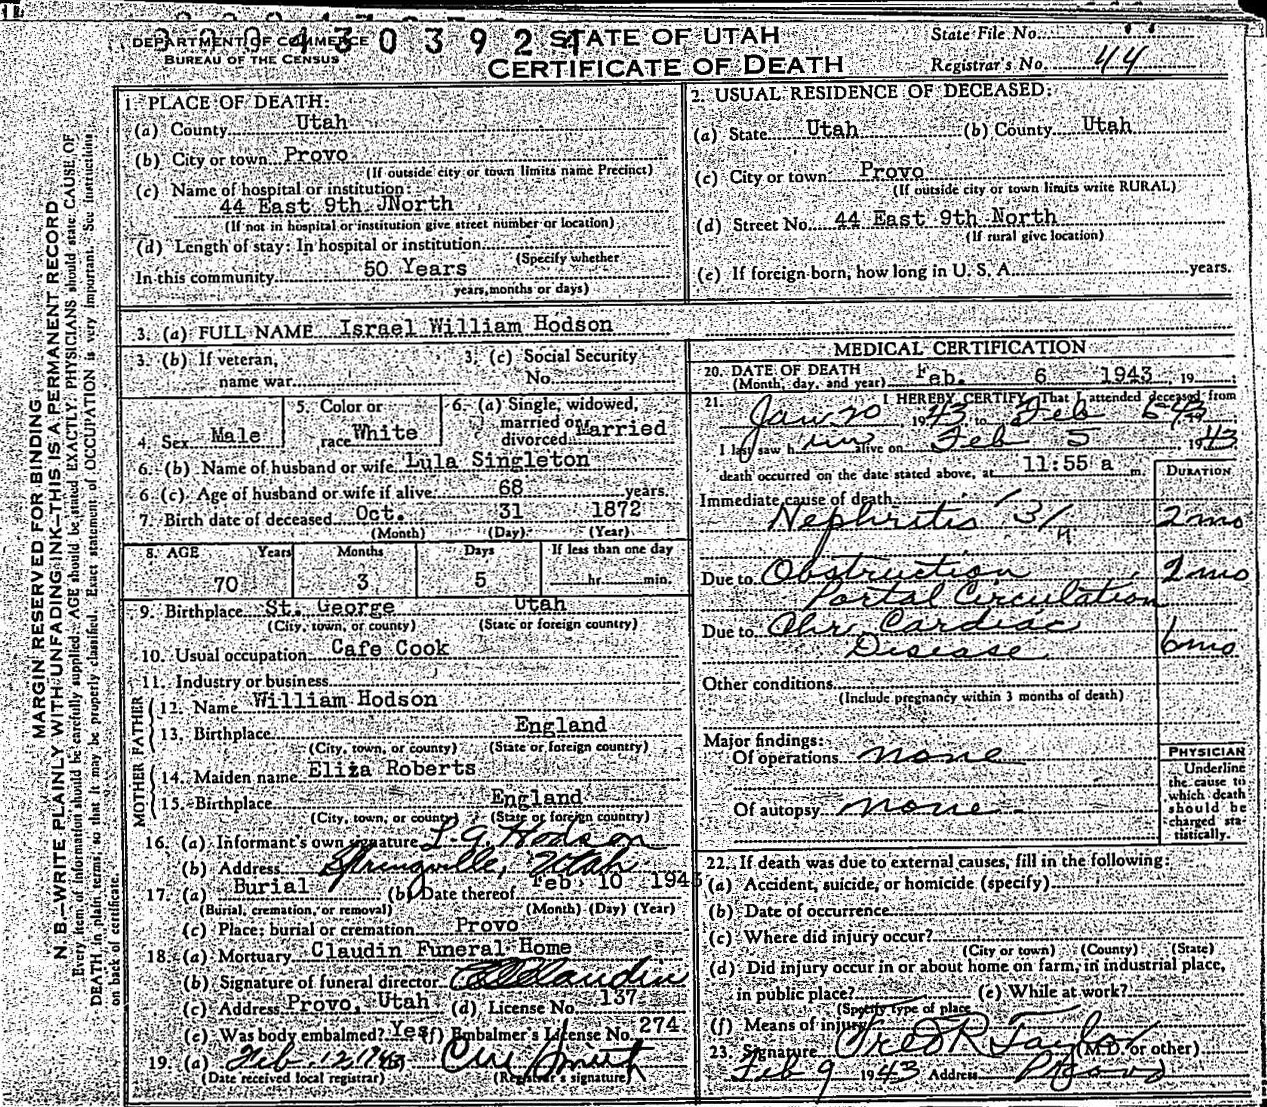 DEPARTMENT OF COMMERCE
BUREAU OF THE CENSUS
430392
STATE OF UTAH
CERTIFICATE OF DEATH
State File No.
Registrar's No. 44
MARGIN RESERVED FOR BINDING
N B.—WRITE PLAINLY WITH UNFADING INK—THIS IS A PERMANENT RECORD
Every item of information should be carefully supplied. AGE should be stated EXACTLY. PHYSICIANS should state CAUSE OF
DEATH in plain terms, so that it may be properly classified. Exact statement of OCCUPATION is very important. See instructions
on back of certificate.
1. PLACE OF DEATH:
(a) County Utah
(b) City or town Provo
(If outside city or town limits name Precinct)
(c) Name of hospital or institution:
44 East 9th JNorth
(If not in hospital or institution give street number or location)
(d) Length of stay: In hospital or institution
(Specify whether
In this community 50 Years
years, months or days)
2. USUAL RESIDENCE OF DECEASED:
(a) State Utah (b) County Utah
(c) City or town Provo
(If outside city or town limits write RURAL)
(d) Street No. 44 East 9th North
(If rural give location)
(e) If foreign born, how long in U. S. A. years.
3. (a) FULL NAME Israel William Hodson
3. (b) If veteran,
name war
3. (c) Social Security
No.
4. Sex Male
5. Color or
race White
6. (a) Single, widowed,
married or
divorced Married
6. (b) Name of husband or wife Lula Singleton
6 (c). Age of husband or wife if alive 68 years.
7. Birth date of deceased Oct. 31 1872
(Month) (Day) (Year)
8. AGE Years Months Days If less than one day
70 3 5 hr. min.
9. Birthplace St. George Utah
(City, town, or county) (State or foreign country)
10. Usual occupation Cafe Cook
11. Industry or business
FATHER
12. Name William Hodson
13. Birthplace England
(City, town, or county) (State or foreign country)
MOTHER
14. Maiden name Eliza Roberts
15. Birthplace England
(City, town, or county) (State or foreign country)
16. (a) Informant's own signature L. G. Hodson
(b) Address Springville, Utah
17. (a) Burial (b) Date thereof Feb 10 1943
(Burial, cremation, or removal) (Month) (Day) (Year)
(c) Place: burial or cremation Provo
18. (a) Mortuary Claudin Funeral Home
(b) Signature of funeral director Claudin
(c) Address Provo, Utah (d) License No. 137
(e) Was body embalmed? Yes (f) Embalmer's License No. 274
19. (a) Feb 12 1943
(Date received local registrar) (Registrar's signature)
MEDICAL CERTIFICATION
20. DATE OF DEATH
(Month, day, and year) Feb. 6 1943, 19
21. I HEREBY CERTIFY, That I attended deceased from
Jan 20, 1943, to Feb 6 43
I last saw him alive on Feb 5 1943
death occurred on the date stated above, at 11:55 a m.
DURATION
Immediate cause of death
Nephritis 2 mo
Due to Obstruction 2 mo
Portal Circulation
Due to Chr. Cardiac
Disease 6 mo
Other conditions
(Include pregnancy within 3 months of death)
Major findings:
Of operations none
Of autopsy none
PHYSICIAN
Underline
the cause to
which death
should be
charged sta-
tistically.
22. If death was due to external causes, fill in the following:
(a) Accident, suicide, or homicide (specify)
(b) Date of occurrence
(c) Where did injury occur?
(City or town) (County) (State)
(d) Did injury occur in or about home on farm, in industrial place,
in public place? (e) While at work?
(Specify type of place
(f) Means of injury
23. Signature Fred R Taylor (M.D. or other)
Feb 9 1943 Address Provo